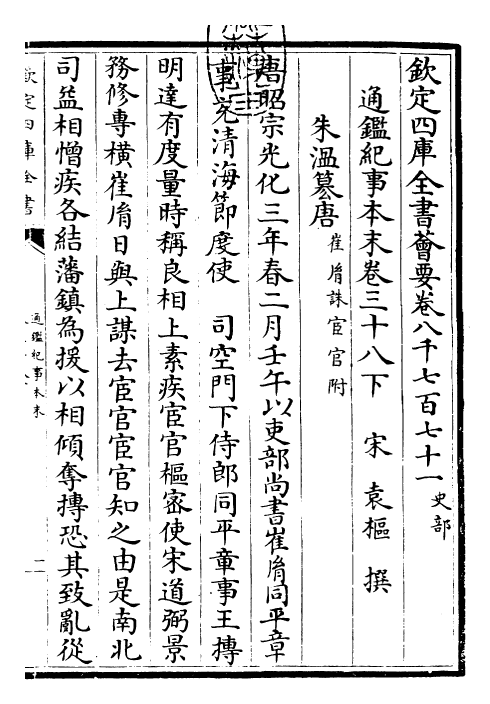 欽定四庫全書薈要卷八千七百七十一 史部
通鑑紀事本末卷三十八下 宋 袁樞 撰
朱溫篡唐 崔胤誅宦官附
唐昭宗光化三年春二月壬午以吏部尚書崔胤同平章
事充清海節度使 司空門下侍郎同平章事王摶
明達有度量時稱良相上素疾宦官樞密使宋道弼景
務修專橫崔胤日與上謀去宦官宦官知之由是南北
司益相憎疾各結藩鎮為援以相傾奪摶恐其致亂從
欽定四庫全書
通鑑紀事本末